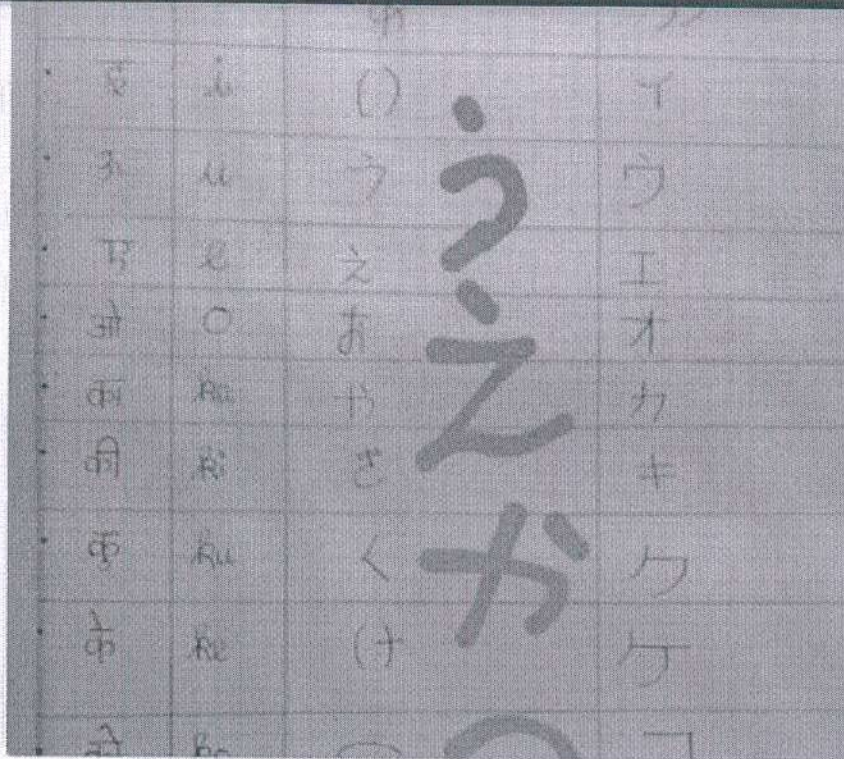 इ i い イ
उ u う ウ
ए e え エ
ओ o お オ
का ka か カ
की ki き キ
कु ku く ク
के ke け ケ
को ko こ コ
う
え
か